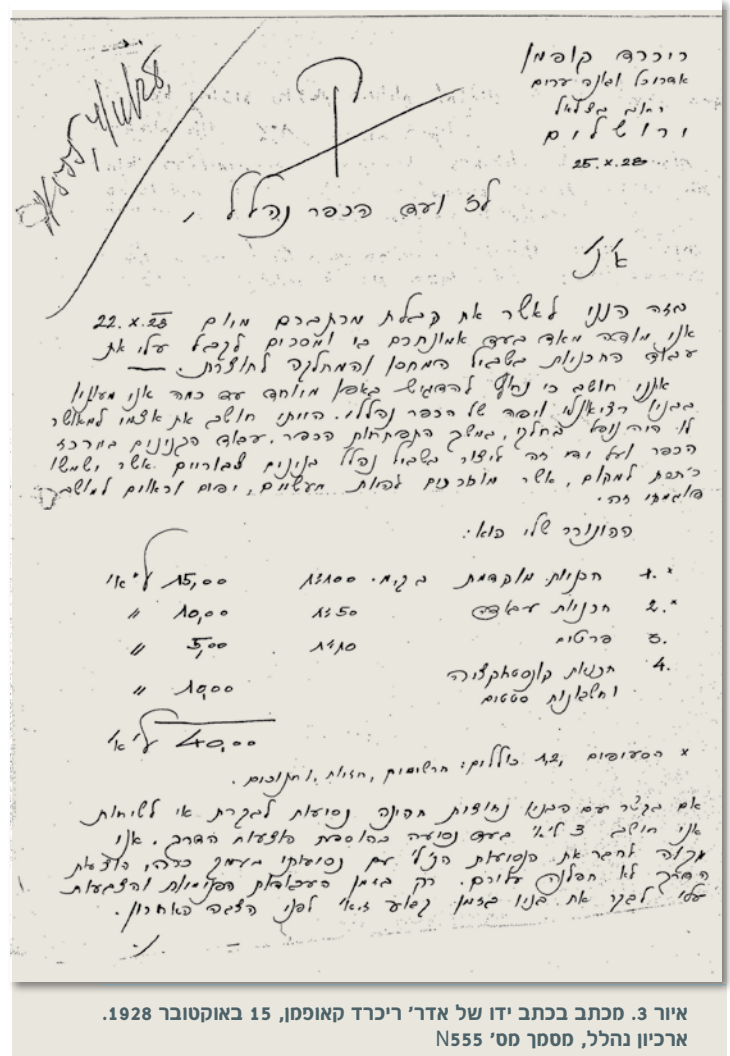 ריכרד קופמן
אדריכל ובונה ערים
רחוב בצלאל
ירושלים
25.X.28
לז ועד הכפר נהלל,
א.נ.
בזה הנני לאשר את קבלת מכתבכם מיום 22.X.28
אני מודה מאד בעד אמונתכם בי ומסכים לקבל עלי את
עבוד התכניות בשביל המחסן והמחלקה לתוצרת.
אינני חושב כי נחוץ להדגיש באפן מיוחד עד כמה אני מעונין
בבנין רציונלי ויפה של הכפר נהלל. הייתי חושב את עצמי למאושר
לו היה נופל בחלקי, במשך התפתחות הכפר, עבוד הבנינים במרכז
הכפר ועל ידי זה ליצור בשביל נהלל בנינים צבוריים אשר ישמשו
למקום, אשר מוכרחים להיות מעשיים, יפים וראוים למושב
זה.
ההונורר שלי הוא:
1.* תכניות מוקדמות בקימ. 1:100 15,00 לא"י
2.* תכניות עבודה 1:50 10,00 "
3. פרטים 1:10 5,00 "
4. תכנית קונסטרוקציה
וחשבונות סטטים 10,00 "
40,00 לא"י
* הסעיפים 1,2 כוללים: תרשימים, חזית, וחתוכים.
אם בקשר עם הבנין נחוצות תהינה נסיעות לבקרת או לשיחות
אני חושב 3 לא"י בעד נסיעה בהוספת הוצאות הדרך. אני
מקוה לחבר את הנסיעות הנ"ל עם נסיעותי בעמק ככה, הוצאות
הדרך לא תפלנה עליכם. רק בזמן העבודות הפנימיות והצבעות
עלי לבקר את בנין בזמן קבוע לפני הצגה האחרון.
איור 3. מכתב בכתב ידו של אדר' ריכרד קאופמן, 15 באוקטובר 1928.
ארכיון נהלל, מסמך מס' N555